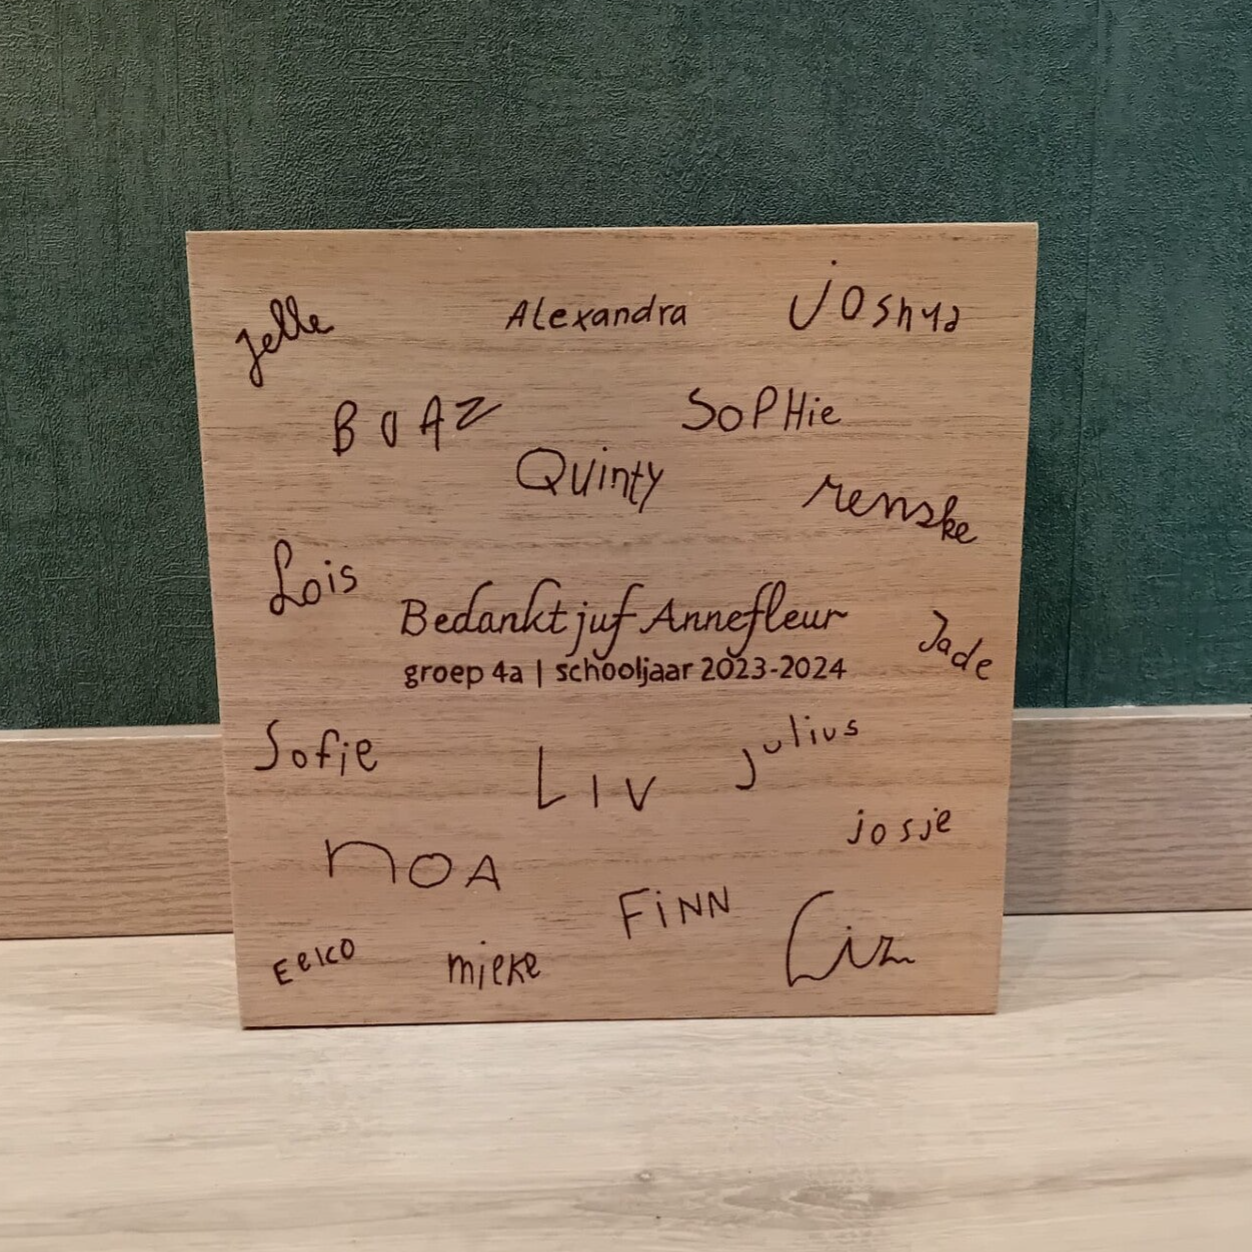 Jelle
Alexandra
Joshua
BOAZ
SoPHie
Quinty
renske
Lois
Bedankt juf Annefleur
groep 4a | schooljaar 2023-2024
Jade
Sofie
LIV
Julius
josje
nOA
FiNN
Eelco
mieke
Liz